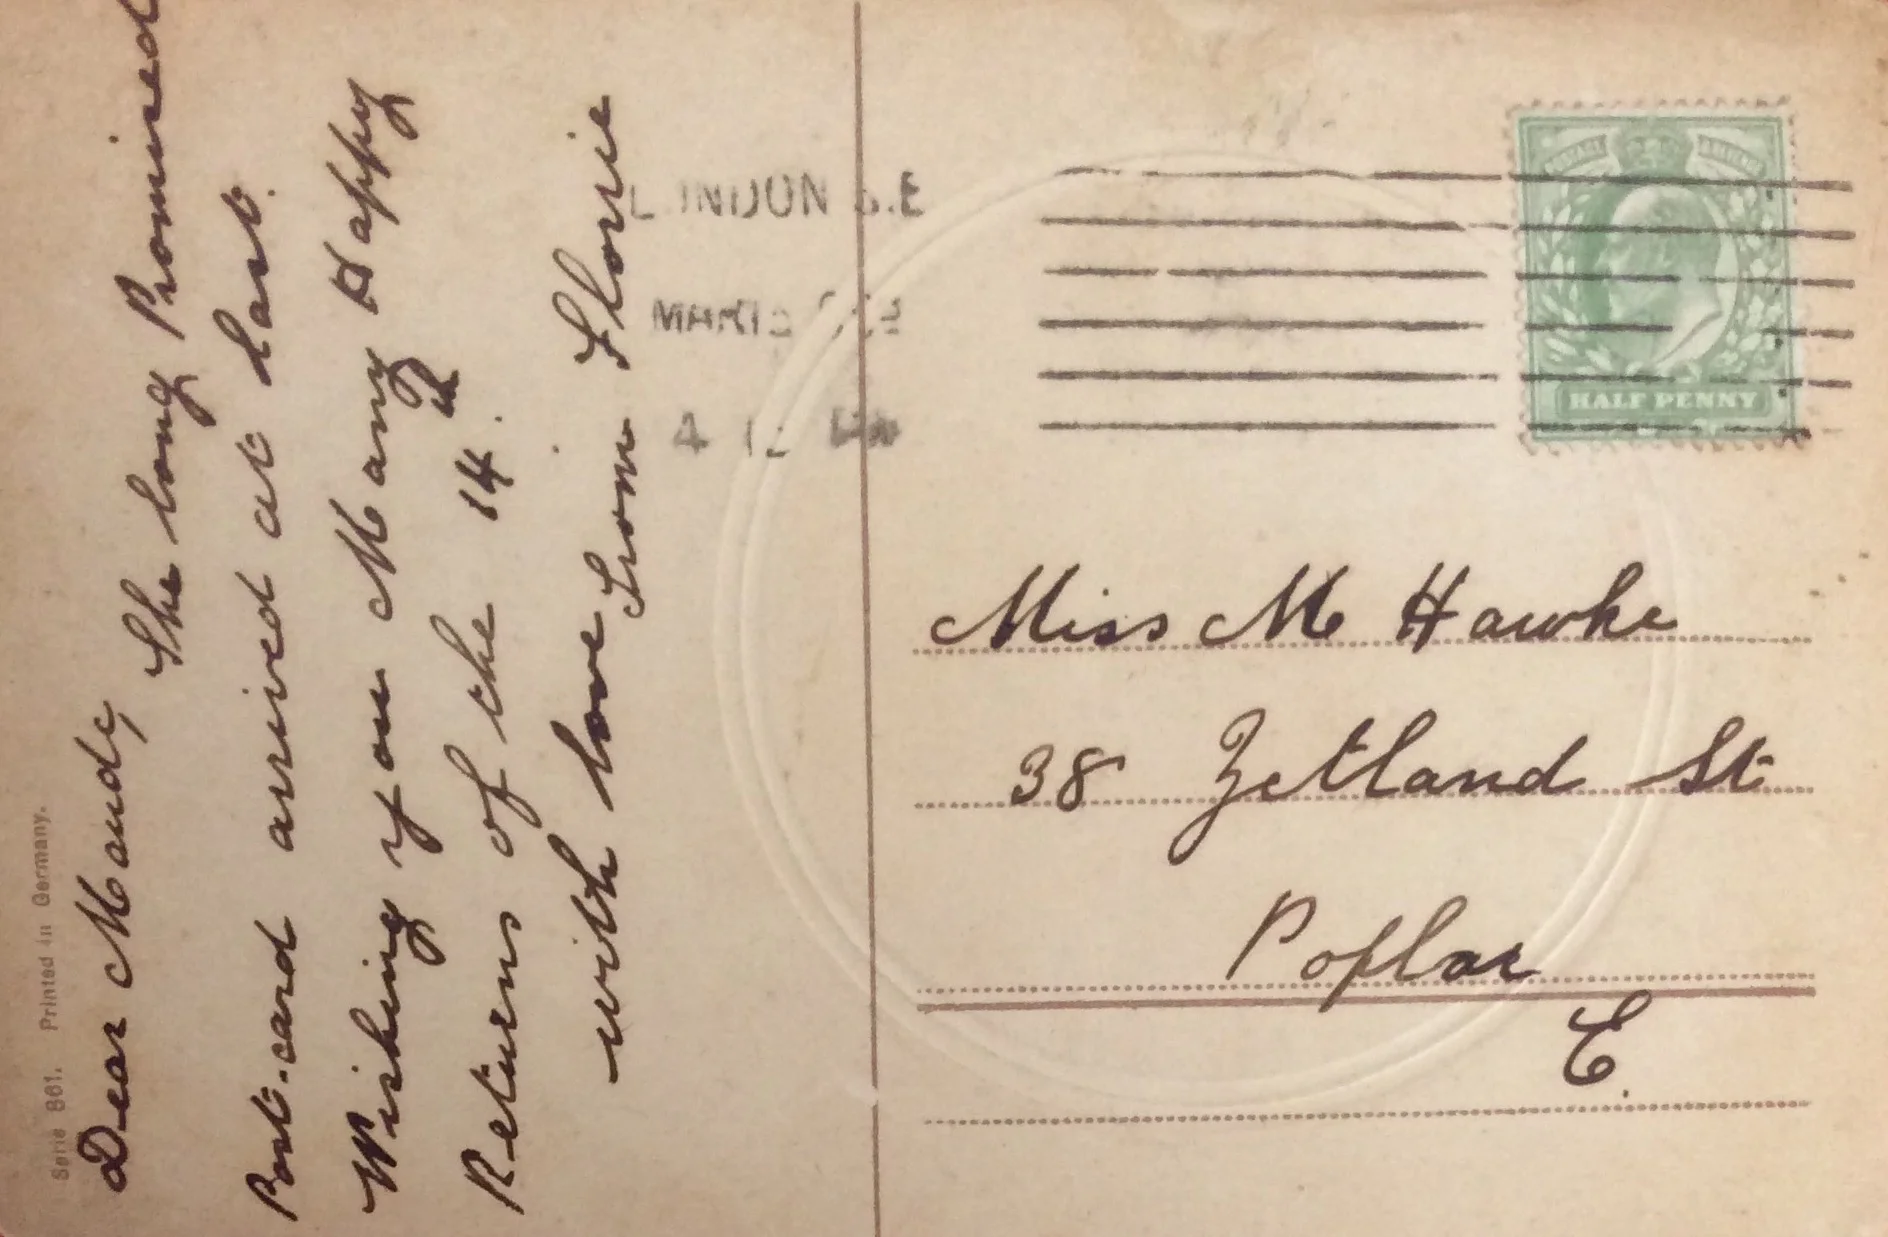 Dear Maudy,
The long Promised
Post-card arrived at last.
Wishing you Many Happy
Returns of the 14th.
with love From Florie
Serie 861. Printed in Germany.
LONDON S.E
4 12
HALF PENNY
Miss M Hawke
38 Zetland St
Poplar
E.